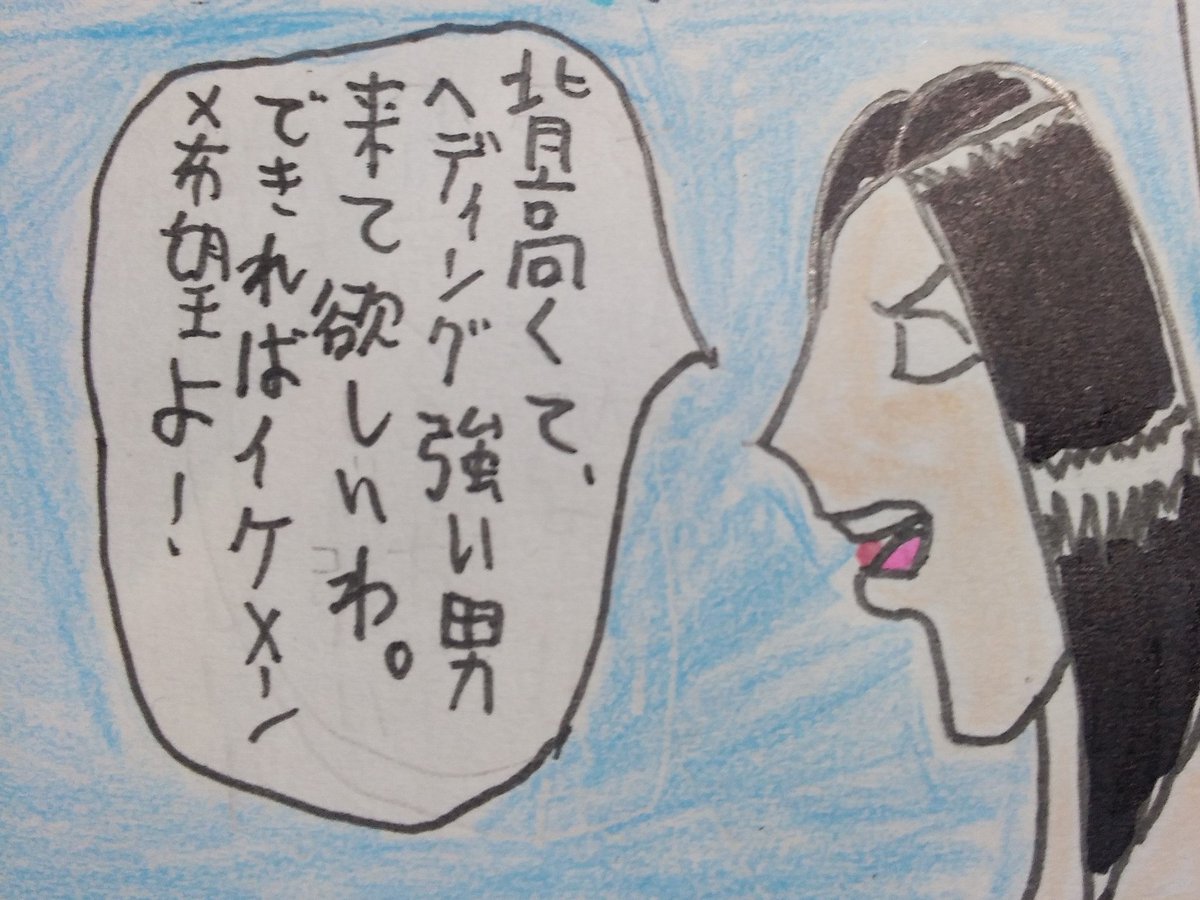 背高くて、
ヘディング強い男
来て欲しいわ。
できればイケメン
希望よ！